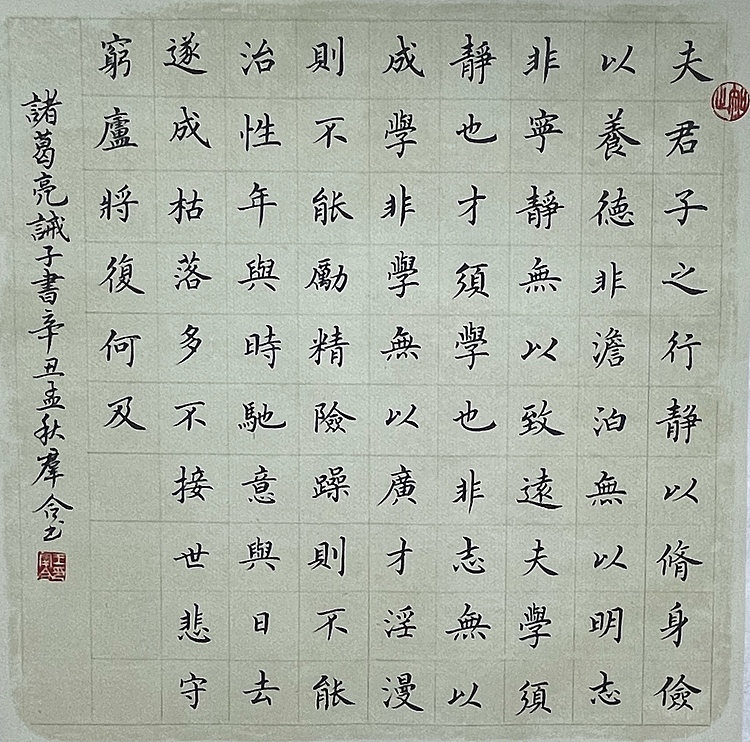 夫君子之行靜以脩身儉
以養德非澹泊無以明志
非寧靜無以致遠夫學須
靜也才須學也非志無以
成學非學無以廣才淫漫
則不能勵精險躁則不能
治性年與時馳意與日去
遂成枯落多不接世悲守
窮廬將復何及
諸葛亮誡子書辛丑孟秋羣合書